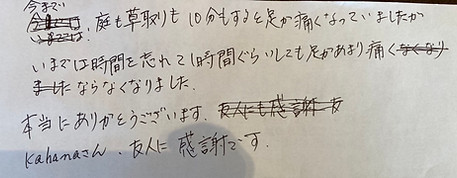 今まで
庭も草取りも10分もすると足が痛くなっていましたが
いまでは時間を忘れて1時間ぐらいしても足があまり痛くなくなり
ましたならなくなりました.
本当にありがとうございます. 友人にも感謝 友
kahanaさん、友人に感謝です.